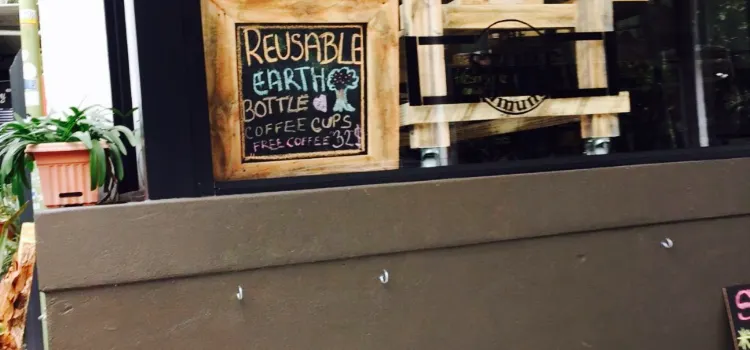 REUSABLE
EARTH
BOTTLE
COFFEE CUPS
FREE COFFEE 32$